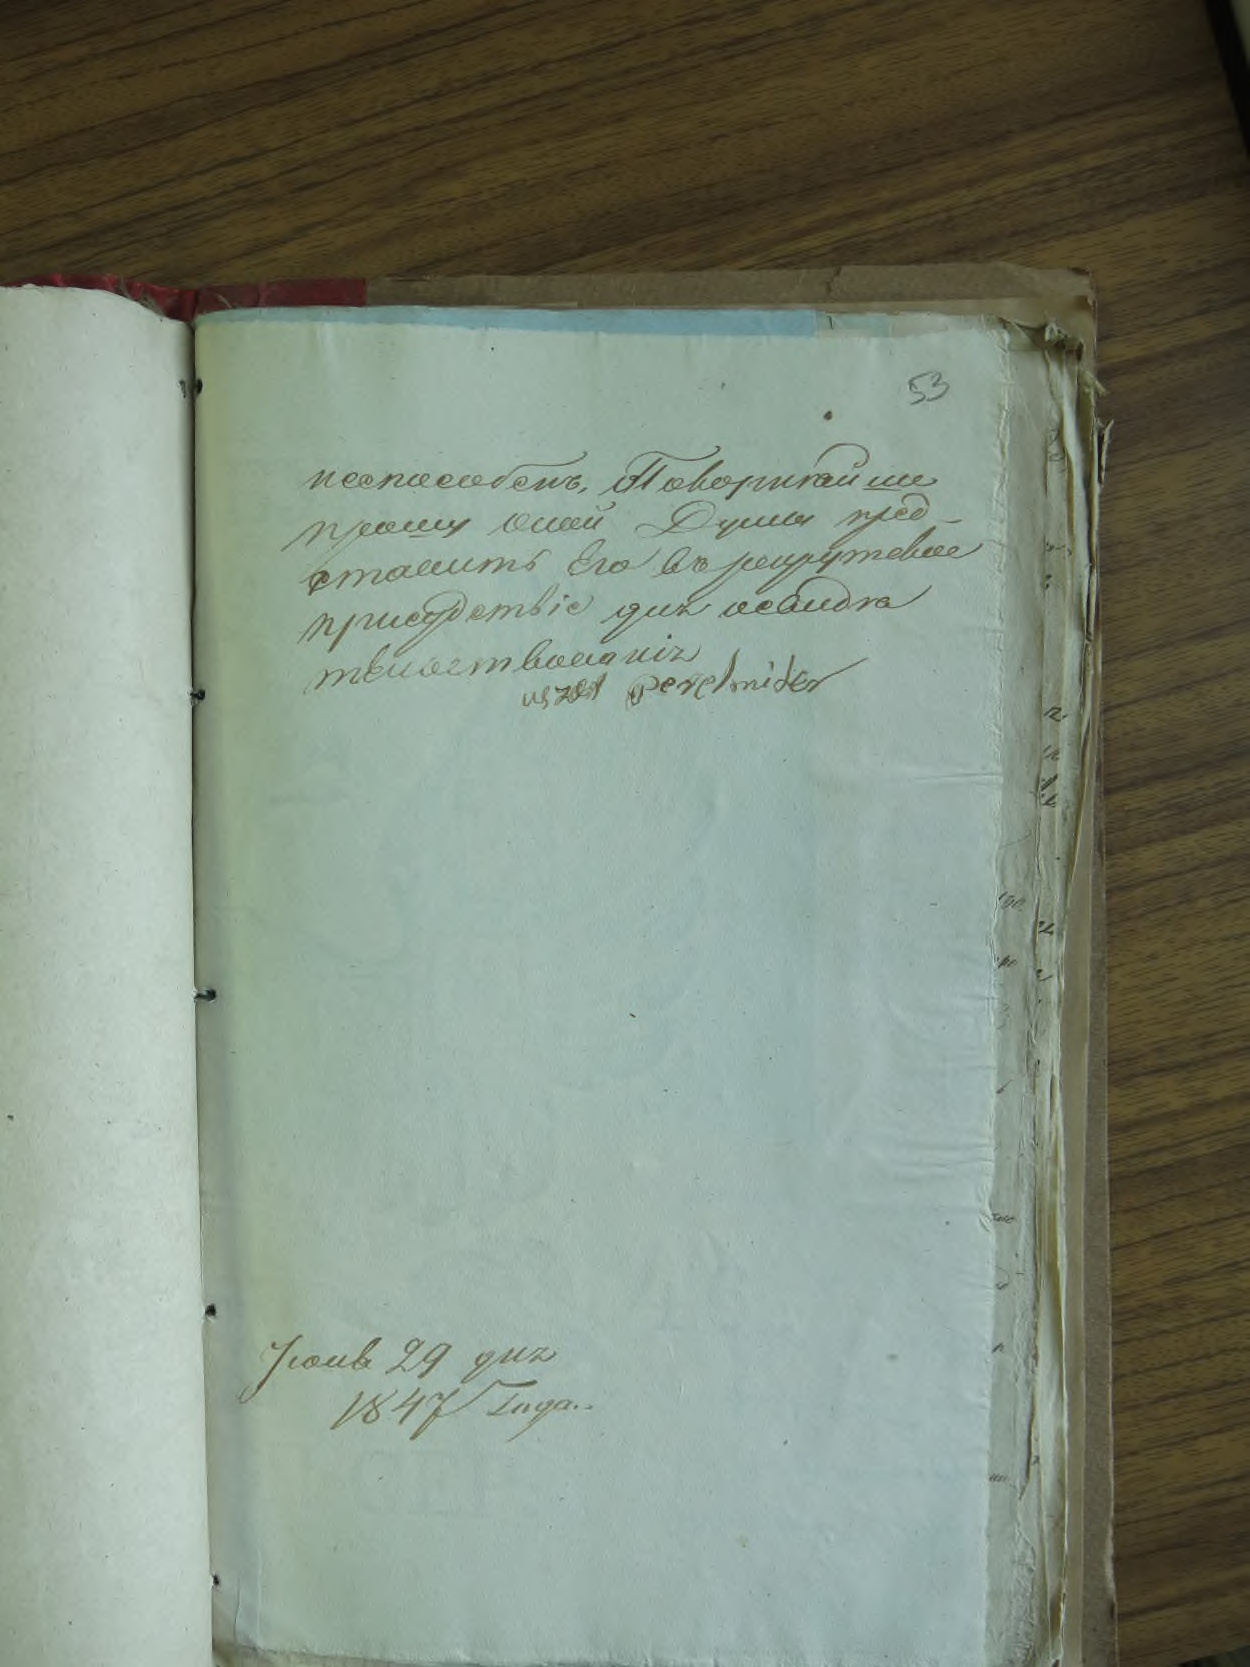 53
неспособенъ, Покорнейше
прошу оной Думы пред
ставить Его въ рекрутское
присудствіе для освидѣ
тельствованія
Perelmiter
Іюня 29 дня
1847 Года.